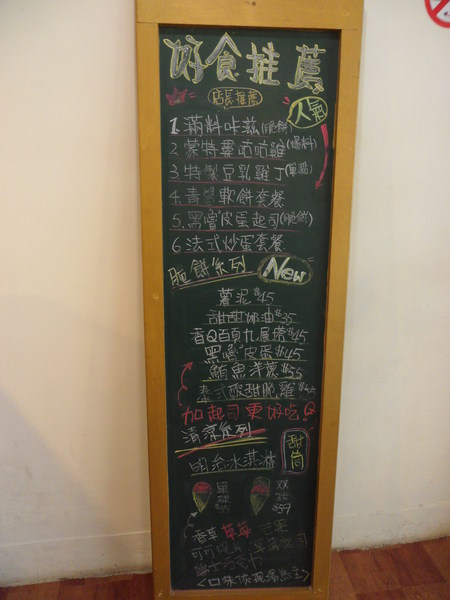 好食推薦
店長推薦
人氣
1 滿料咔滋(脆餅)
2 蒙特婁咕咕雞(爆料)
3 特製豆乳雞丁(單點)
4 青醬軟餅套餐
5 黑嚕皮蛋起司(脆餅)
6 法式炒蛋套餐
脆餅系列 New
薯泥$45
甜甜奶油$35
香Q百頁九層塔$45
黑嚕皮蛋$45
鮪魚洋蔥$55
泰式酸甜脆雞
加起司更好吃
清涼系列
明治冰淇淋
甜筒
單球
雙球
$59
香草 草莓
口味依現場為主